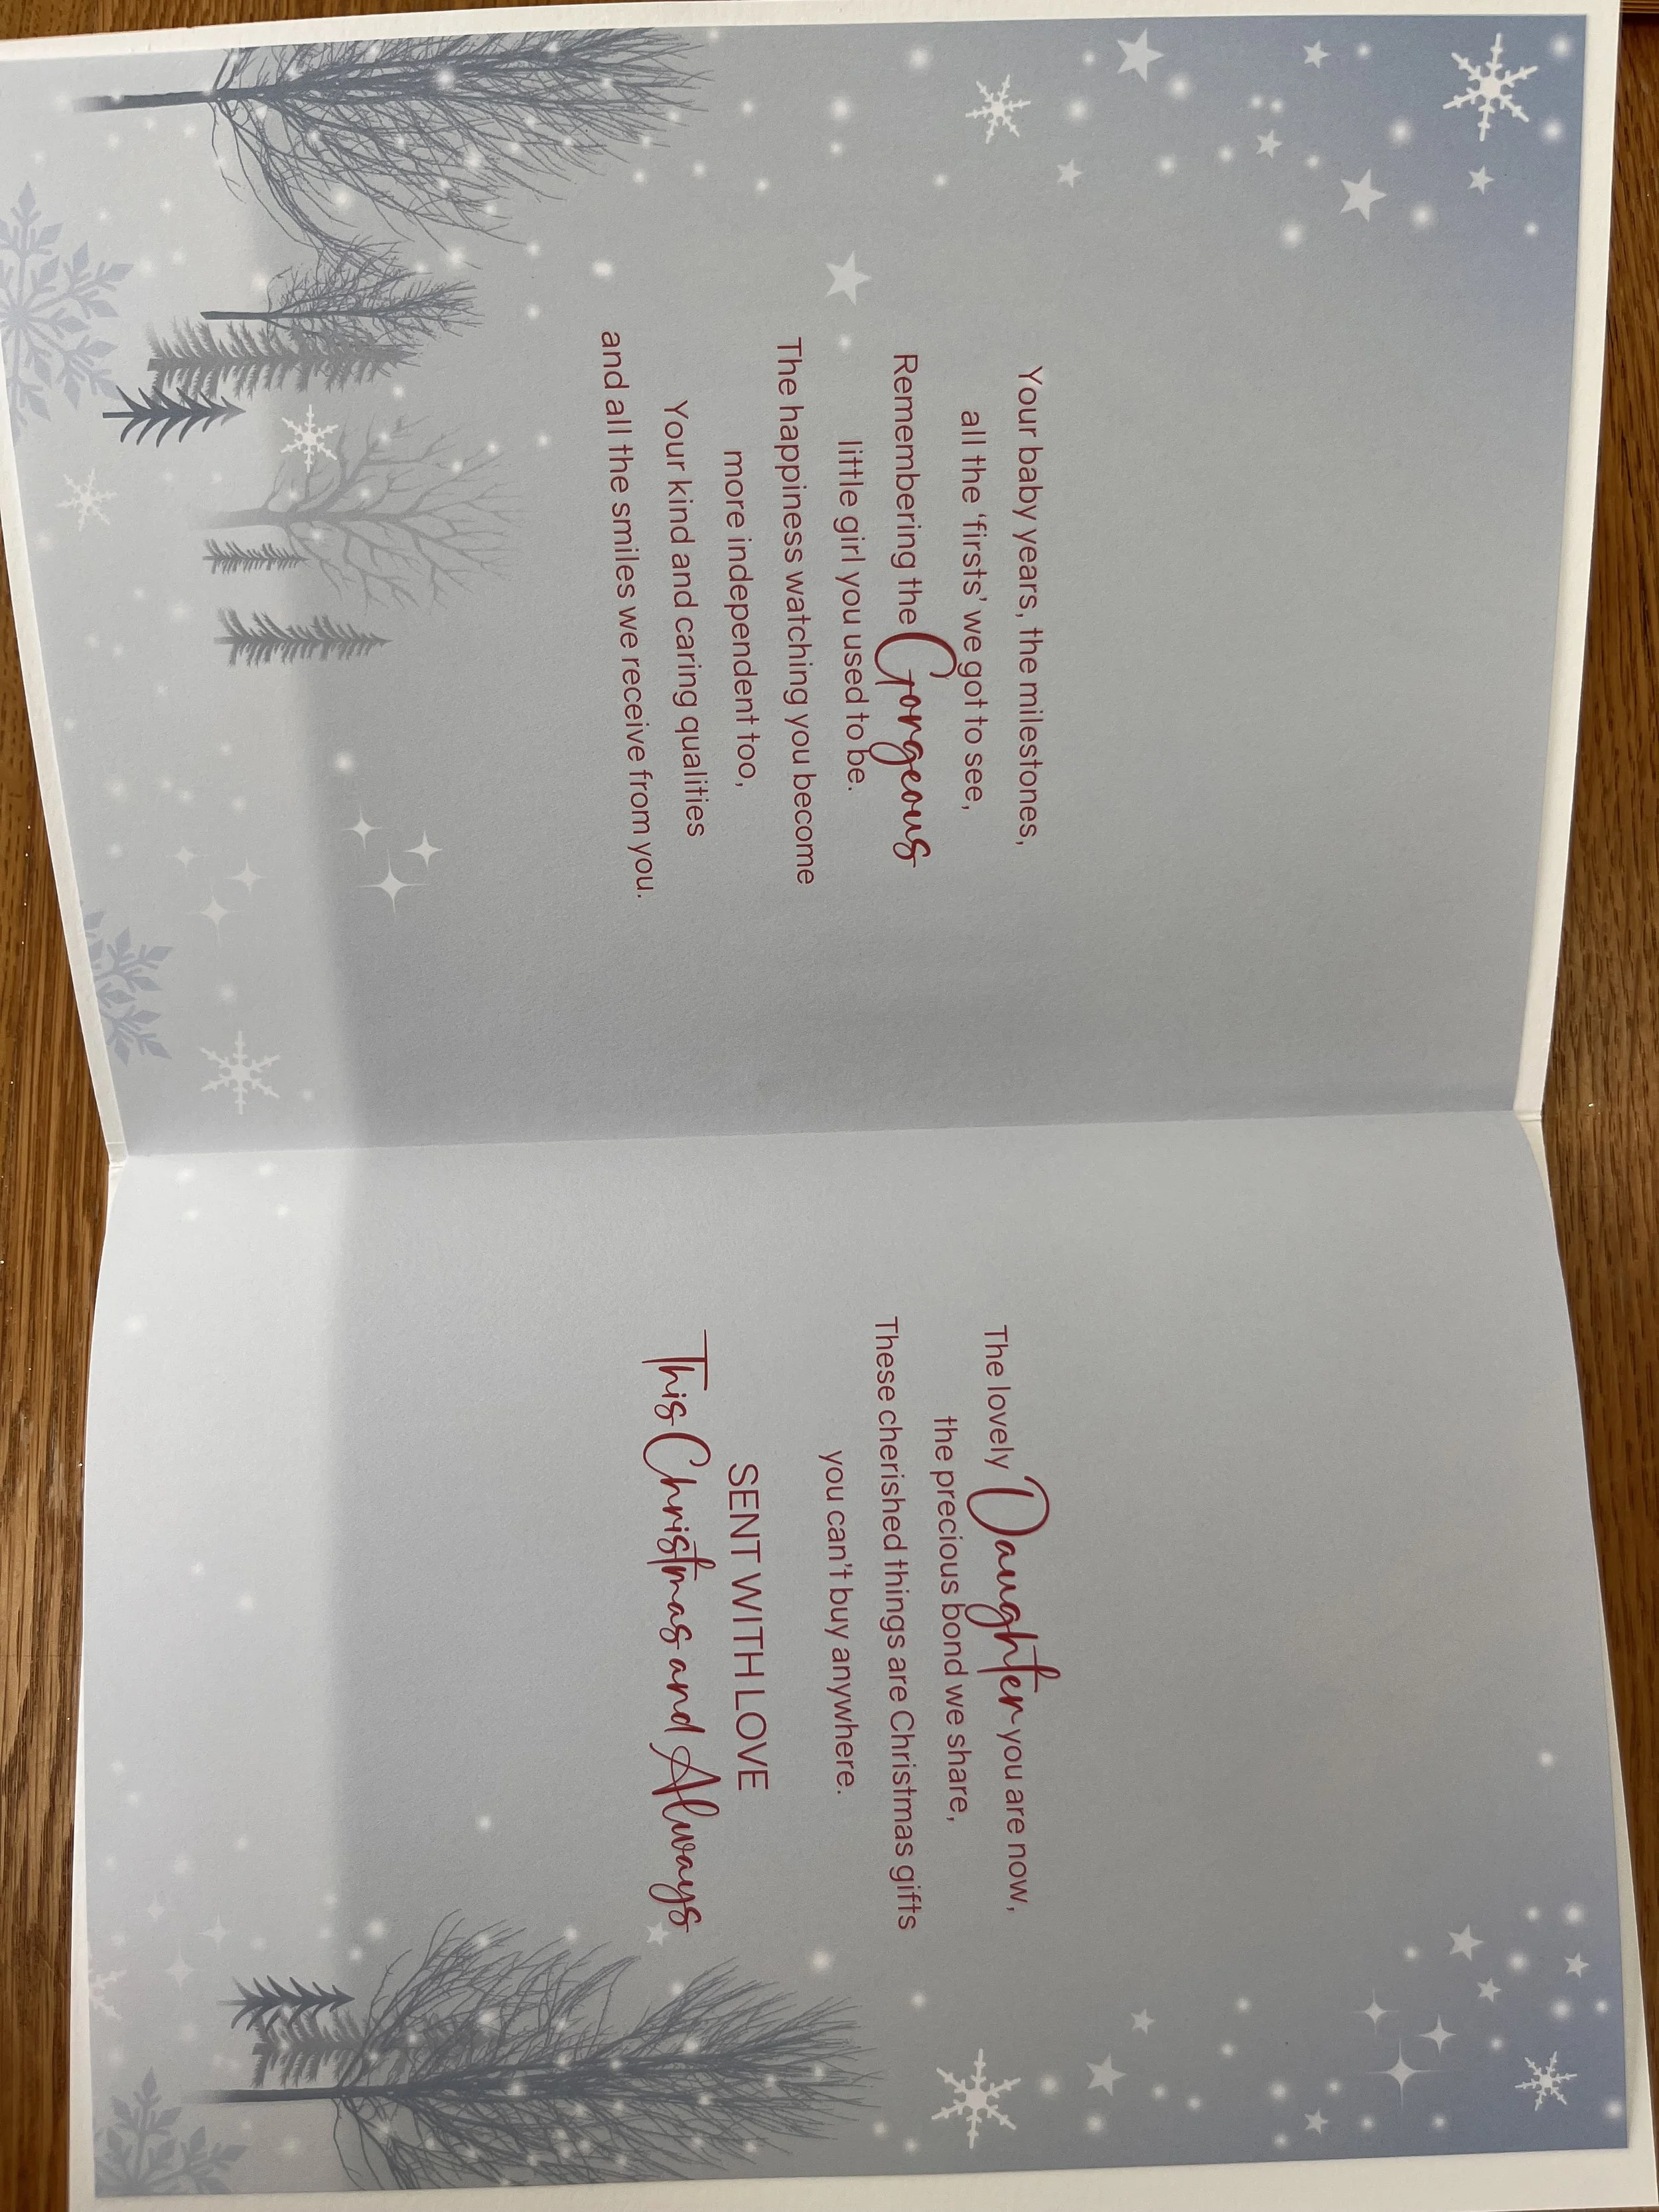 Your baby years, the milestones,
all the ‘firsts’ we got to see,
Remembering the Gorgeous
little girl you used to be.
The happiness watching you become
more independent too,
Your kind and caring qualities
and all the smiles we receive from you.
The lovely Daughter you are now,
the precious bond we share,
These cherished things are Christmas gifts
you can’t buy anywhere.
SENT WITH LOVE
This Christmas and Always